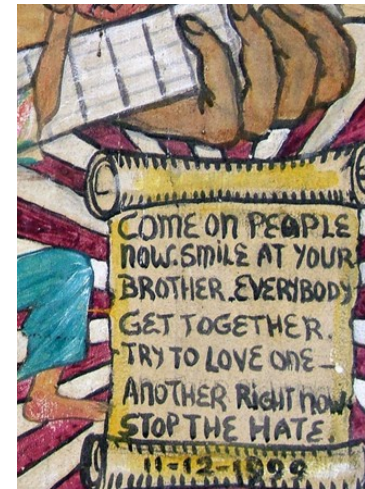 COME ON PEOPLE
NOW. SMILE AT YOUR
BROTHER. EVERYBODY
GET TOGETHER.
TRY TO LOVE ONE-
ANOTHER RIGHT NOW.
STOP THE HATE.
11-12-1999